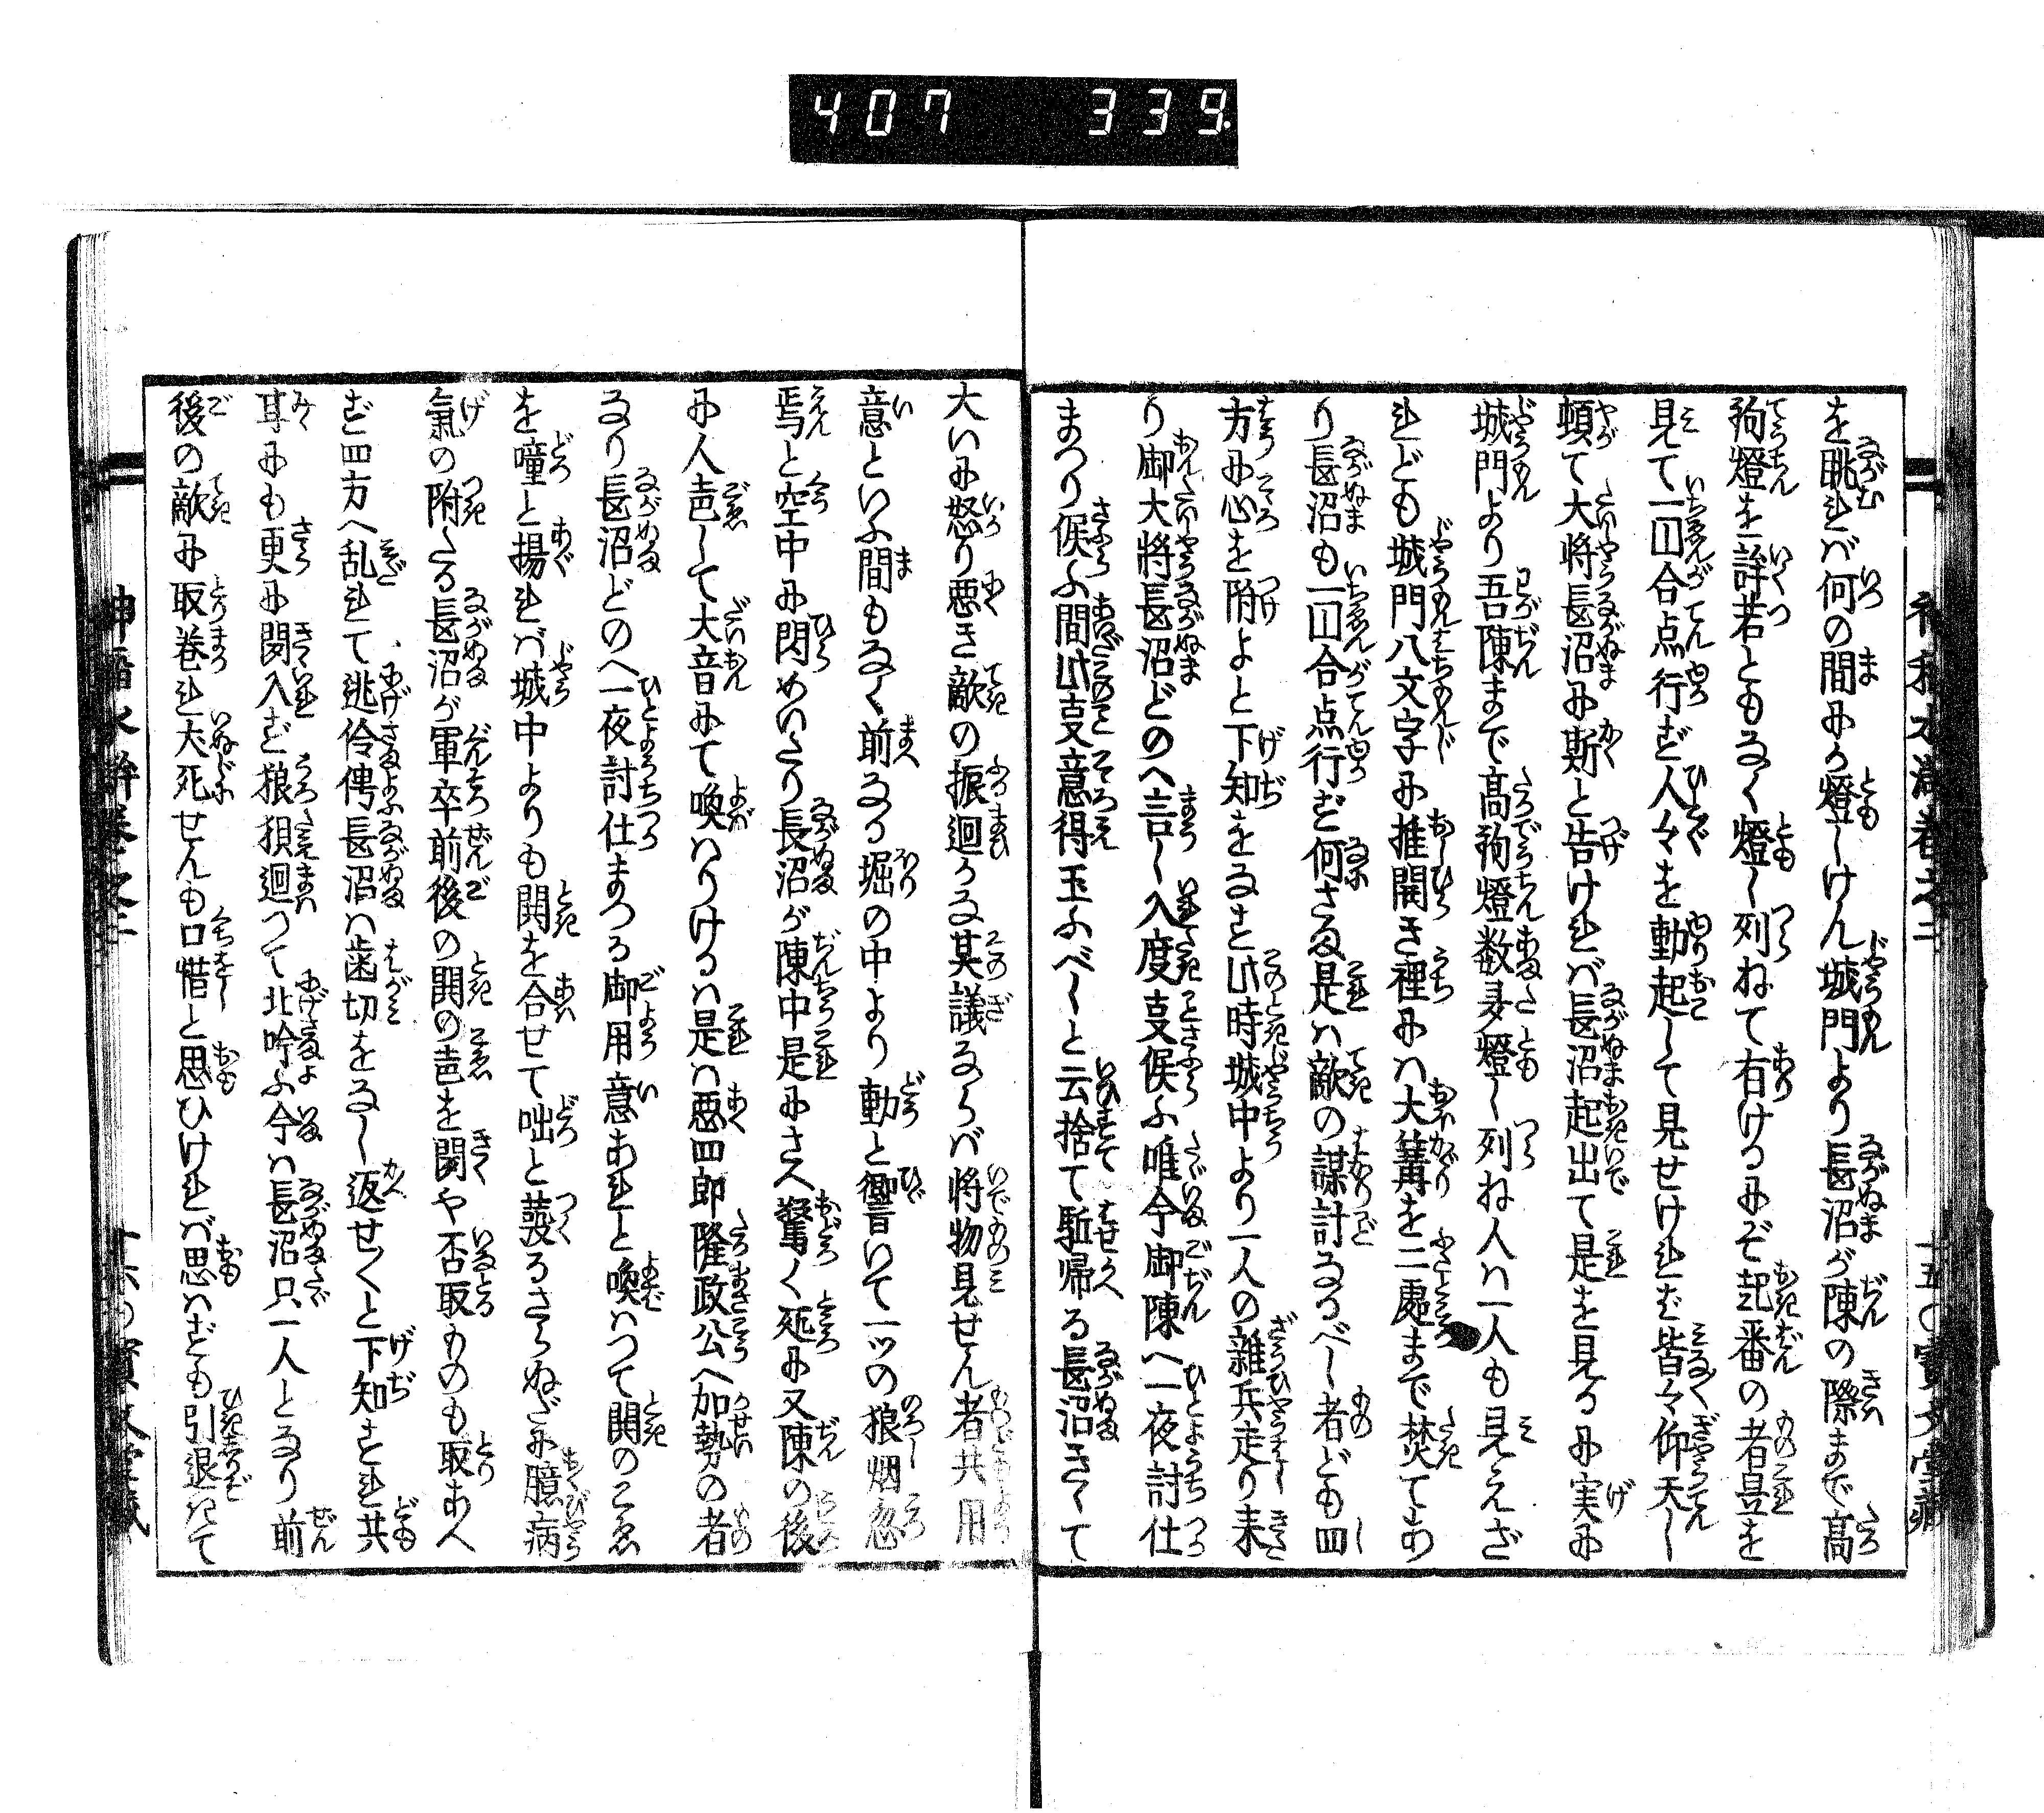 407 339.
を眺れば何の間にか燈しけん城門より長沼が陳の際まで高
狗燈を許若ともなく燈し列ねて有けるにぞ起番の者是を
見て一囙合点行ず人々を動起して見せければ皆々仰天し
頓て大将長沼に斯と告ければ長沼起出て是を見るに実に
城門より吾陳まで高狗燈数多燈し列ね人は一人も見えざ
れども城門八文字に推開き裡には大篝を二處まで焚てあ
り長沼も一囙合点行ず何さま是は敵の謀計なるべし者ども四
方に心を附よと下知をなす此時城中より一人の雑兵走り来
り御大将長沼どのへ言し入度㕝候ふ唯今御陳へ一夜討仕
まつり候ふ間此㕝意得玉ふべしと云捨て駈帰る長沼きくて
大いに怒り悪き敵の振迴かな其議ならば将物見せん者共用
意といふ間もなく前なる堀の中より動と響いて一ッの狼烟忽
焉と空中に閃めいたり長沼が陳中是にさへ驚く処に又陳の後
に人声して大音にて喚はりけるは是は悪四郎隆政公へ加勢の者
なり長沼どのへ一夜討仕まつる御用意あれと喚はつて鬨のこゑ
を噇と揚れば城中よりも鬨を合せて咄と蕟るさらぬだに臆病
氣の附たる長沼が軍卒前後の鬨の声を聞や否取ものも取あへ
ず四方へ乱れて逃伶俜長沼は歯切をなし返せ〳〵と下知すれ共
耳にも更に聞入ず狼狽迴つて北吟ふ今は長沼只一人となり前
後の敵に取巻れ犬死せんも口惜と思ひければ思はずも引退きて